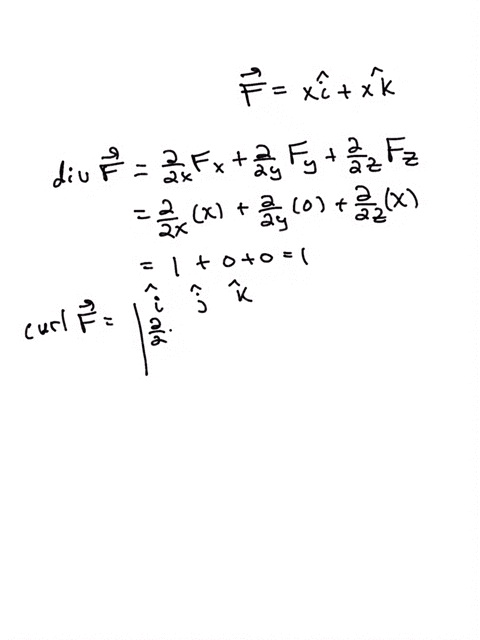 F⃗ = xî + xk̂
div F⃗ = ∂/∂x Fx + ∂/∂y Fy + ∂/∂z Fz
= ∂/∂x (x) + ∂/∂y (0) + ∂/∂z (x)
= 1 + 0 + 0 = 1
î ĵ k̂
curl F⃗ = | ∂/∂